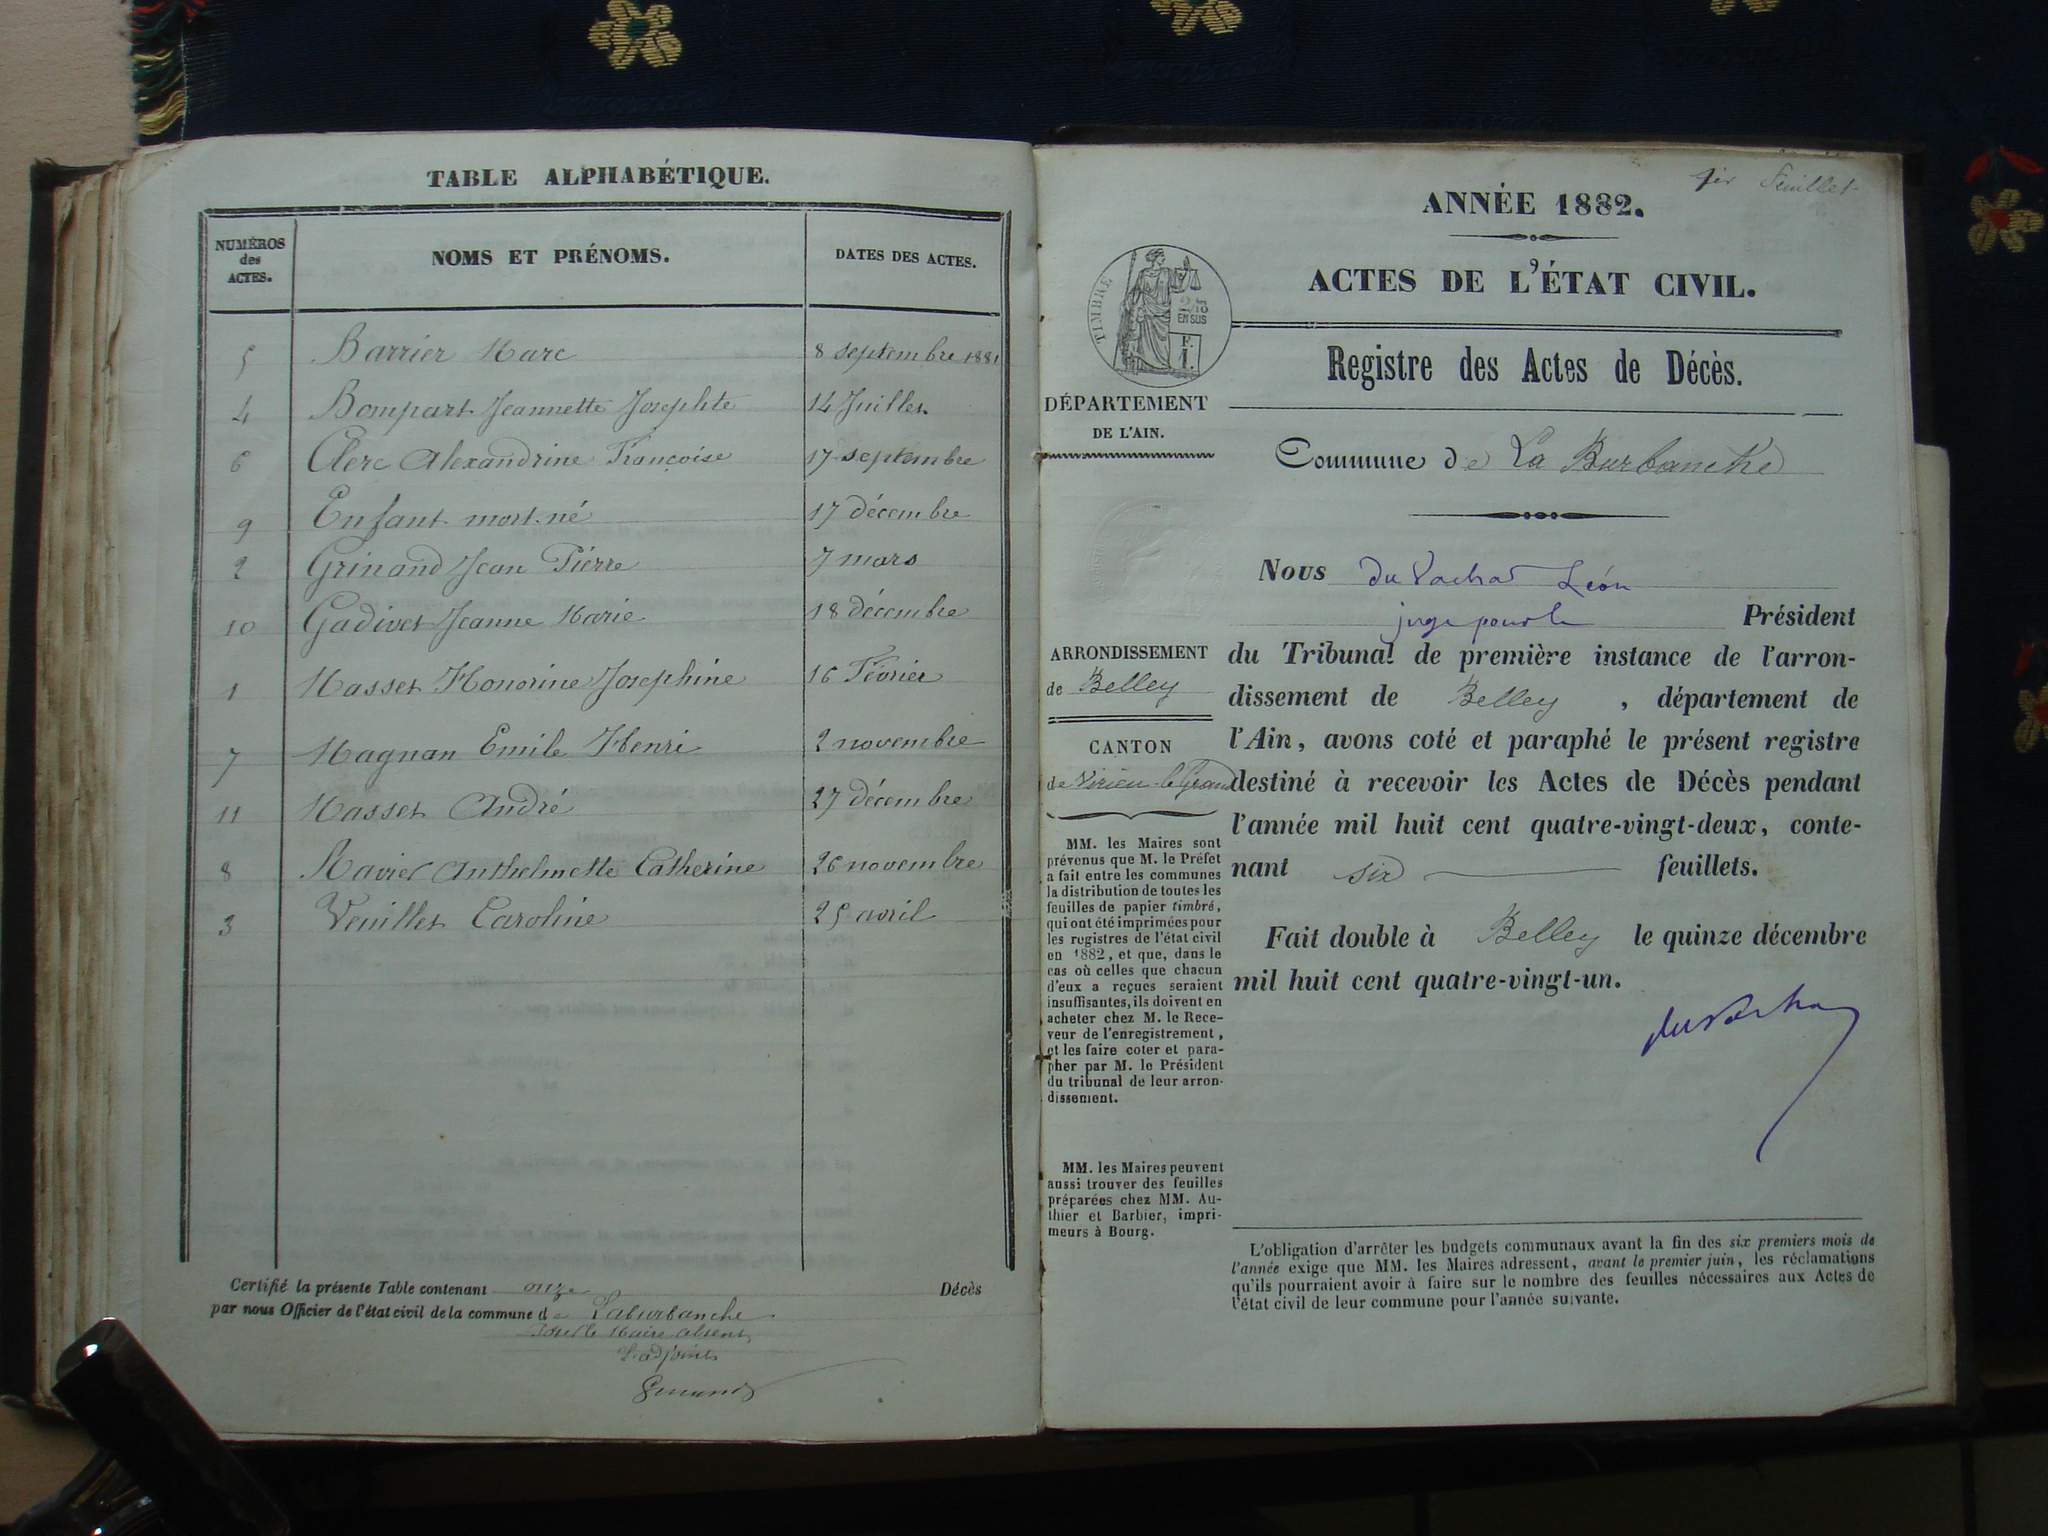 TABLE ALPHABÉTIQUE.
NUMÉROS
des
ACTES.
NOMS ET PRÉNOMS.
DATES DES ACTES.
5 Barrier Marc 8 septembre 1881
4 Bompart Jeannette Josephte 14 Juillet
6 Clerc Alexandrine Françoise 17 septembre
9 Enfant mort-né 17 décembre
2 Grinand Jean Pierre 7 mars
10 Gadivet Jeanne Marie 18 décembre
1 Masset Honorine Josephine 16 Février
7 Magnan Emile Henri 2 novembre
11 Masset André 27 décembre
8 Ravier Anthelmette Catherine 26 novembre
3 Veuillet Caroline 25 avril
Certifié la présente Table contenant onze Décès
par nous Officier de l'état civil de la commune de Laburbanche
Pour le Maire absent
L'adjoint
1er Feuillet
ANNÉE 1882.
ACTES DE L'ÉTAT CIVIL.
TIMBRE
2/10
EN SUS
F.
1.
Registre des Actes de Décès.
DÉPARTEMENT
DE L'AIN.
Commune de La Burbanche
Nous du Vachat Léon
juge pour le Président
du Tribunal de première instance de l'arron-
dissement de Belley, département de
l'Ain, avons coté et paraphé le présent registre
destiné à recevoir les Actes de Décès pendant
l'année mil huit cent quatre-vingt-deux, conte-
nant six feuillets.
Fait double à Belley le quinze décembre
mil huit cent quatre-vingt-un.
du Vachat
ARRONDISSEMENT
de Belley
CANTON
de Virieu-le-Grand
MM. les Maires sont
prévenus que M. le Préfet
a fait entre les communes
la distribution de toutes les
feuilles de papier timbré,
qui ont été imprimées pour
les registres de l'état civil
en 1882, et que, dans le
cas où celles que chacun
d'eux a reçues seraient
insuffisantes, ils doivent en
acheter chez M. le Rece-
veur de l'enregistrement,
et les faire coter et para-
pher par M. le Président
du tribunal de leur arron-
dissement.
MM. les Maires peuvent
aussi trouver des feuilles
préparées chez MM. Au-
thier et Barbier, impri-
meurs à Bourg.
L'obligation d'arrêter les budgets communaux avant la fin des six premiers mois de
l'année exige que MM. les Maires adressent, avant le premier juin, les réclamations
qu'ils pourraient avoir à faire sur le nombre des feuilles nécessaires aux Actes de
l'état civil de leur commune pour l'année suivante.